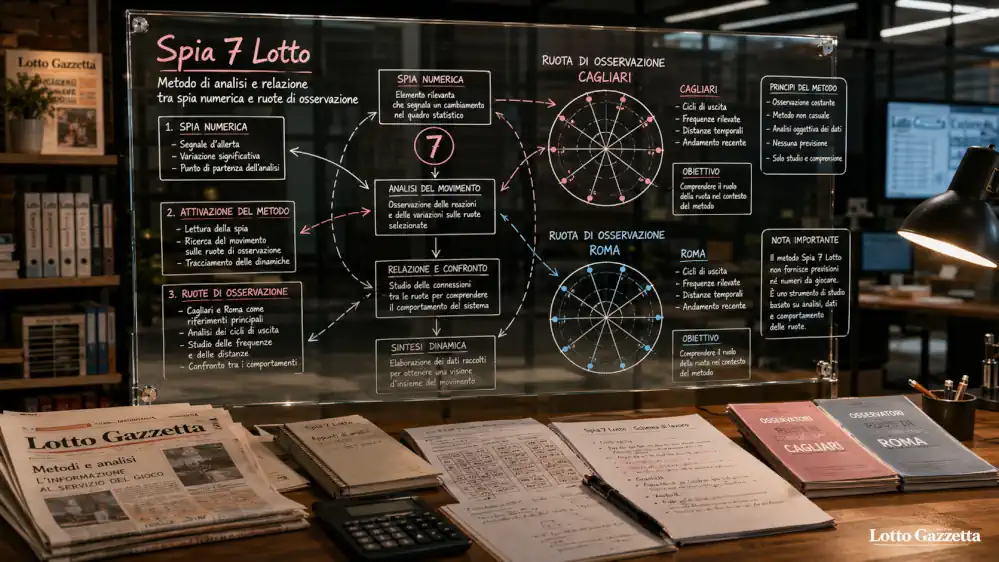 Lotto Gazzetta
Spia 7 Lotto
Metodo di analisi e relazione
tra spia numerica e ruote di osservazione
1. SPIA NUMERICA
- Segnale d'allerta
- Variazione significativa
- Punto di partenza dell'analisi
2. ATTIVAZIONE DEL METODO
- Lettura della spia
- Ricerca del movimento
sulle ruote di osservazione
- Tracciamento delle dinamiche
3. RUOTE DI OSSERVAZIONE
- Cagliari e Roma come
riferimenti principali
- Analisi dei cicli di uscita
- Studio delle frequenze
e delle distanze
- Confronto tra i comportamenti
SPIA NUMERICA
Elemento rilevante
che segnala un cambiamento
nel quadro statistico
7
ANALISI DEL MOVIMENTO
Osservazione delle reazioni
e delle variazioni sulle ruote
selezionate
RELAZIONE E CONFRONTO
Studio delle connessioni
tra le ruote per comprendere
il comportamento del sistema
SINTESI DINAMICA
Elaborazione dei dati raccolti
per ottenere una visione
d'insieme del movimento
RUOTA DI OSSERVAZIONE
CAGLIARI
CAGLIARI
- Cicli di uscita
- Frequenze rilevate
- Distanze temporali
- Andamento recente
OBIETTIVO
Comprendere il ruolo
della ruota nel contesto
del metodo
RUOTA DI OSSERVAZIONE
ROMA
ROMA
- Cicli di uscita
- Frequenze rilevate
- Distanze temporali
- Andamento recente
OBIETTIVO
Comprendere il ruolo
della ruota nel contesto
del metodo
PRINCIPI DEL METODO
- Osservazione costante
- Metodo non casuale
- Analisi oggettiva dei dati
- Nessuna previsione
- Solo studio e comprensione
NOTA IMPORTANTE
Il metodo Spia 7 Lotto
non fornisce previsioni
né numeri da giocare.
È uno strumento di studio
basato su analisi, dati
e comportamento
delle ruote.
Lotto Gazzetta
Metodi e analisi
L'INFORMAZIONE
AL SERVIZIO DEL GIOCO
Spia 7 Lotto
Appunti di
Spia 7 Lotto - Schema di lavoro
OSSERVATORI
CAGLIARI
OSSERVATORI
ROMA
Lotto Gazzetta